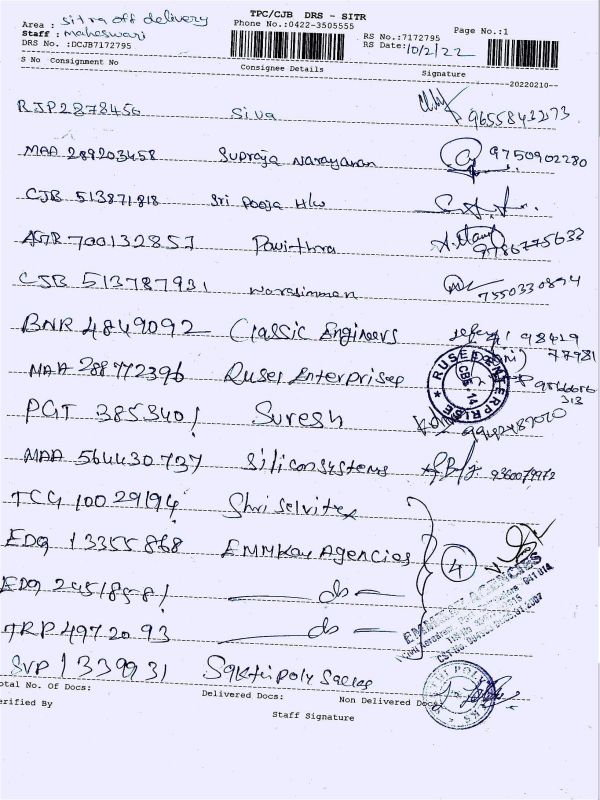 TPC/CJB DRS - SITR
Area : sitra off delivery Phone No.:0422-3505555
Staff : maheswari RS No.:7172795 Page No.:1
DRS No. :DCJB7172795 RS Date: 10/2/22
S No Consignment No Consignee Details Signature
--20220210--
RJP2878456 Siva 9655842273
MAA 289203458 Supraja Narayanan 9750902280
CJB 513871818 Sri Pooja H/w
700132857 Pavithra 9786775633
CJB 513787931 Narasimman 7550330894
BNR 4849092 Classic Engineers 98429
77981
MAA 288772396 Rusel Enterprises
313
PGT 385340 Suresh
MAA 564430737 Siliconsystems 9360079972
TCG 10029194 Shri selvitex
EDQ 13355868 EMMKay Agencies 4
EDQ do
TRP 4972093 do
SVP 1339931 Sakthi poly Sacks
otal No. Of Docs: Delivered Docs: Non Delivered Docs:
erified By Staff Signature